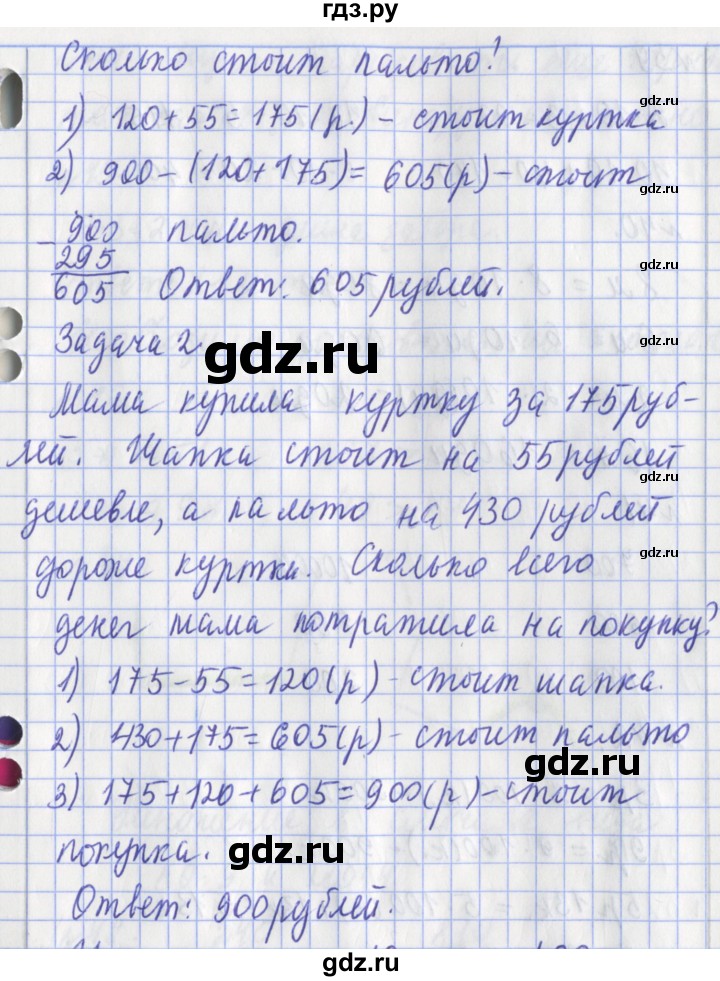 гдз.ру
Сколько стоит пальто?
gdz.ru
1) 120+55=175(р.) – стоит куртка
gdz.ru
2) 900–(120+175)=605(р) – стоит
gdz.ru
900 пальто.
– 295
605 Ответ: 605 рублей.
gdz.ru
gdz.ru
Задача 2.
gdz.ru
Мама купила куртку за 175 руб-
gdz.ru
лей. Шапка стоит на 55 рублей
gdz.ru
дешевле, а пальто на 430 рублей
gdz.ru
дороже куртки. Сколько всего
gdz.ru
денег мама потратила на покупку?
1) 175–55=120(р) – стоит шапка.
gdz.ru
2) 430+175=605(р) – стоит пальто
gdz.ru
3) 175+120+605=900(р) – стоит
gdz.ru
покупка.
gdz.ru
Ответ: 900 рублей.
gdz.ru
gdz.ru